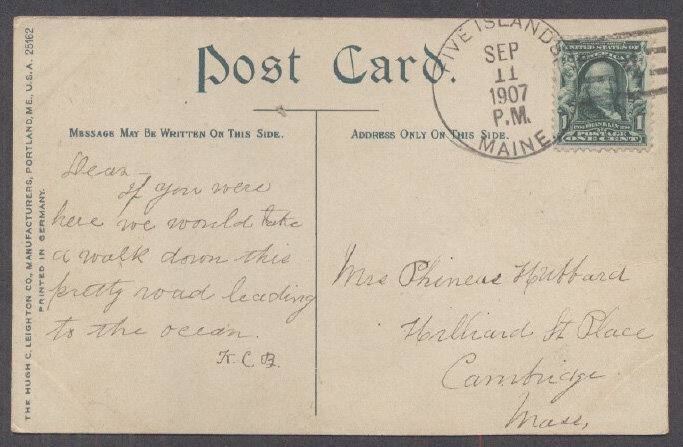 THE HUGH C. LEIGHTON CO., MANUFACTURERS, PORTLAND, ME., U.S.A. 25162
PRINTED IN GERMANY.
Post Card.
MESSAGE MAY BE WRITTEN ON THIS SIDE.
ADDRESS ONLY ON THIS SIDE.
FIVE ISLANDS
SEP
11
1907
P.M.
MAINE.
UNITED STATES OF
FRANKLIN
1 POSTAGE 1
ONE CENT
Dear –
If you were
here we would take
a walk down this
pretty road leading
to the ocean.
K. C. B.
Mrs Phineas Hubbard
Hilliard St Place
Cambridge
Mass,